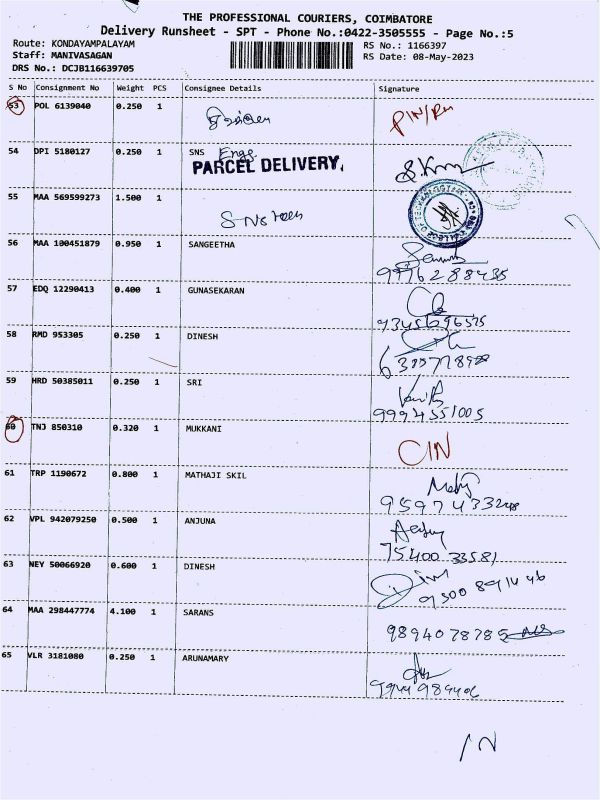 THE PROFESSIONAL COURIERS, COIMBATORE
Delivery Runsheet - SPT - Phone No.:0422-3505555 - Page No.:5
Route: KONDAYAMPALAYAM RS No.: 1166397
Staff: MANIVASAGAN RS Date: 08-May-2023
DRS No.: DCJB116639705
S No Consignment No Weight PCS Consignee Details Signature
53 POL 6139040 0.250 1
54 DPI 5180127 0.250 1 SNS Engg
PARCEL DELIVERY.
55 MAA 569599273 1.500 1
56 MAA 100451879 0.950 1 SANGEETHA
9776288435
57 EDQ 12290413 0.400 1 GUNASEKARAN
9345696575
58 RMD 953305 0.250 1 DINESH
59 HRD 50385011 0.250 1 SRI
9994551005
60 TNJ 850310 0.320 1 MUKKANI CIN
61 TRP 1190672 0.800 1 MATHAJI SKIL
62 VPL 942079250 0.500 1 ANJUNA
75400 33581
63 NEY 50066920 0.600 1 DINESH
64 MAA 298447774 4.100 1 SARANS
9894078785
65 VLR 3181080 0.250 1 ARUNAMARY
9944989406